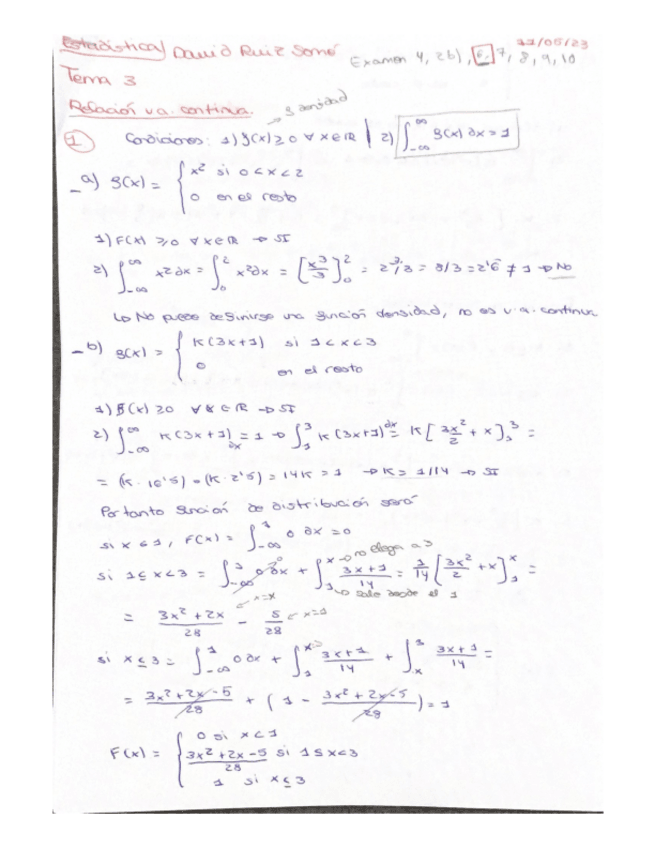 Estadística/ David Ruiz Somé 11/05/23
Examen 4, 2b), 6, 7, 8, 9, 10
Tema 3
Relación v.a. continua.
→ f densidad
① Condiciones: 1) f(x) ≥ 0 ∀ x ∈ ℝ | 2) ∫_{-∞}^{∞} f(x) dx = 1
a) f(x) = { x² si 0 < x < 2
0 en el resto
1) F(x) ≥ 0 ∀ x ∈ ℝ → SI
2) ∫_{-∞}^{∞} x² dx = ∫_0^2 x² dx = [x³/3]_0^2 = 2³/3 = 8/3 = 2'6 ≠ 1 → No
↳ No puede definirse una función densidad, no es v.a. continua
b) f(x) = { K(3x+1) si 1 < x < 3
0 en el resto
1) f(x) ≥ 0 ∀ x ∈ ℝ → SI
2) ∫_{-∞}^{∞} K(3x+1) dx = 1 → ∫_1^3 K(3x+1) dx = K[3x²/2 + x]_1^3 =
= (K · 16'5) - (K · 2'5) = 14K = 1 → K = 1/14 → SI
Por tanto función de distribución será
si x < 1, F(x) = ∫_{-∞}^{1} 0 dx = 0
→ no llega a 3
si 1 ≤ x < 3 = ∫_{-∞}^{1} 0 dx + ∫_1^x (3x+1)/14 = 1/14 [3x²/2 + x]_1^x =
↳ sale desde el 1
= (3x² + 2x)/28 ← x=x - 5/28 ← x=1
si x ≤ 3 = ∫_{-∞}^{1} 0 dx + ∫_1^x (3x+1)/14 + ∫_x^3 (3x+1)/14 =
= (3x²+2x-5)/28 + (1 - (3x²+2x-5)/28) = 1
F(x) = { 0 si x < 1
(3x²+2x-5)/28 si 1 ≤ x < 3
1 si x ≤ 3